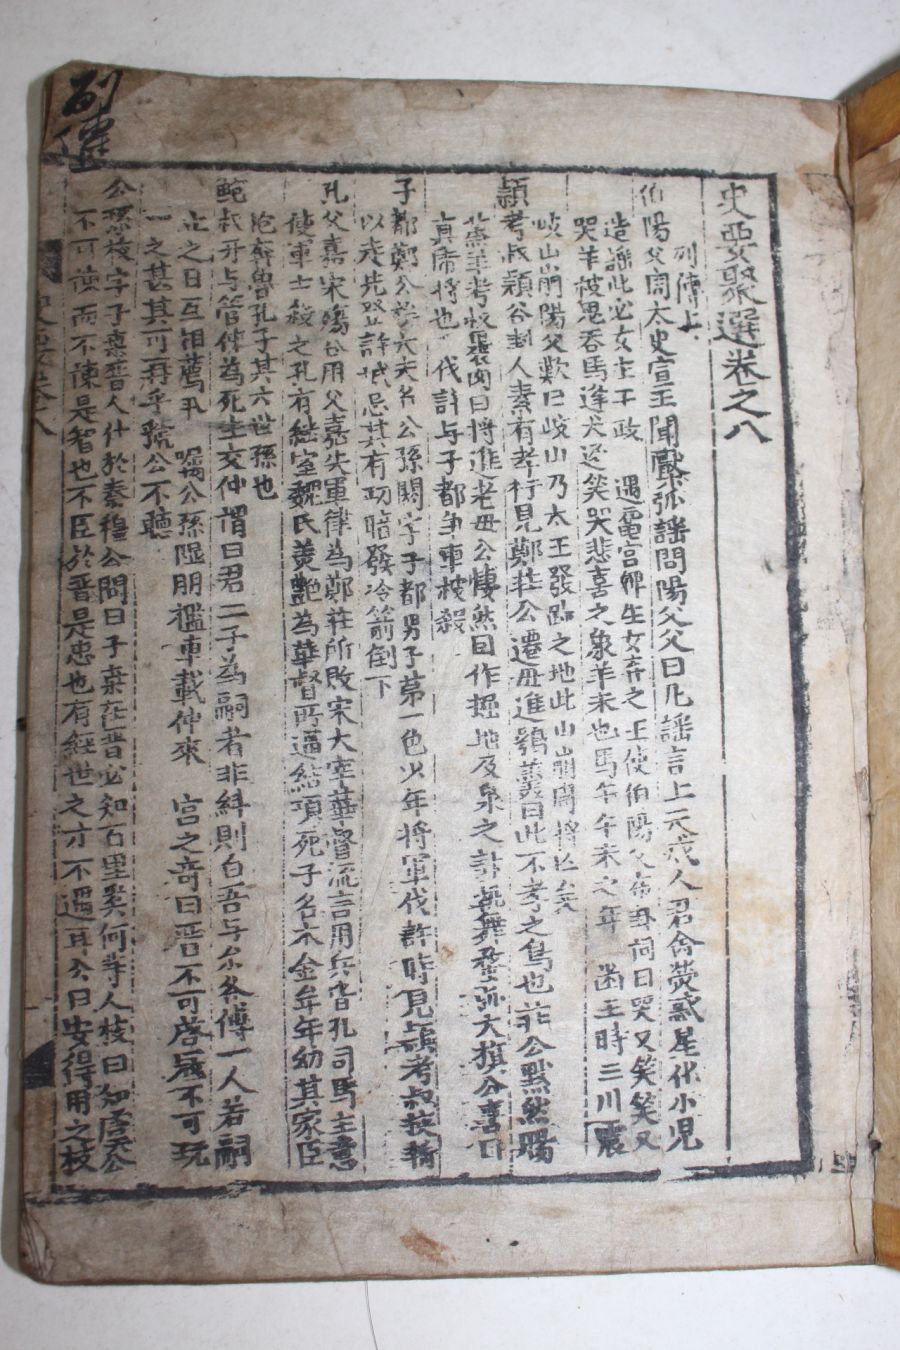 史要聚選卷之八
列傳上
伯陽父周太史宣王聞檿弧謠問陽父父曰凡謠言上天戒人君命熒惑星化小児
造謠此必女主干政 遇電宮婢生女弃之王使伯陽父布卦詞曰哭又笑笑又
哭羊被鬼吞馬逢犬逐笑哭悲喜之象羊未也馬午午未之年 幽王時三川震
岐山崩陽父歎曰岐山乃太王發跡之地此山崩周將亡矣
頴考叔頴谷封人素有孝行見鄭莊公遷母進鴞羹曰此不孝之鳥也莊公黙然賜
蒸羊考叔裹肉曰將進老母公悽然曰作掘地及泉之計 舞蝥弧大旗公喜曰
真席將也 伐許与子都争車被殺
子都鄭公族大夫名公孫閼字子都男子苐一色少年將軍伐許時見頴考叔
以老先登許城忌其有功暗發冷箭倒下
孔父嘉宋殤公用父嘉失軍律為鄭莊所敗宋大宰華督流言用兵皆孔司馬主意
使軍士殺之孔有継室魏氏美艶為華督所逼結項死子名木金年年幼其家臣
抢奔魯孔子其六世孫也
鮑叔牙与管仲為死生交仲謂曰君二子為嗣者非糾則白吾与尔各傅一人若嗣
立之日互相薦卆 囑公孫隰朋檻車載仲來 宮之竒曰晋不可啓冦不可玩
一之甚其可再乎虢公不聽
公孫枝字子桑晋人什於秦穆公問曰子桑在晋必知百里奚何等人枝曰知虞公
不可諫而不諫是智也不臣於晋是忠也有経世之才不遇耳公曰安得用之枝